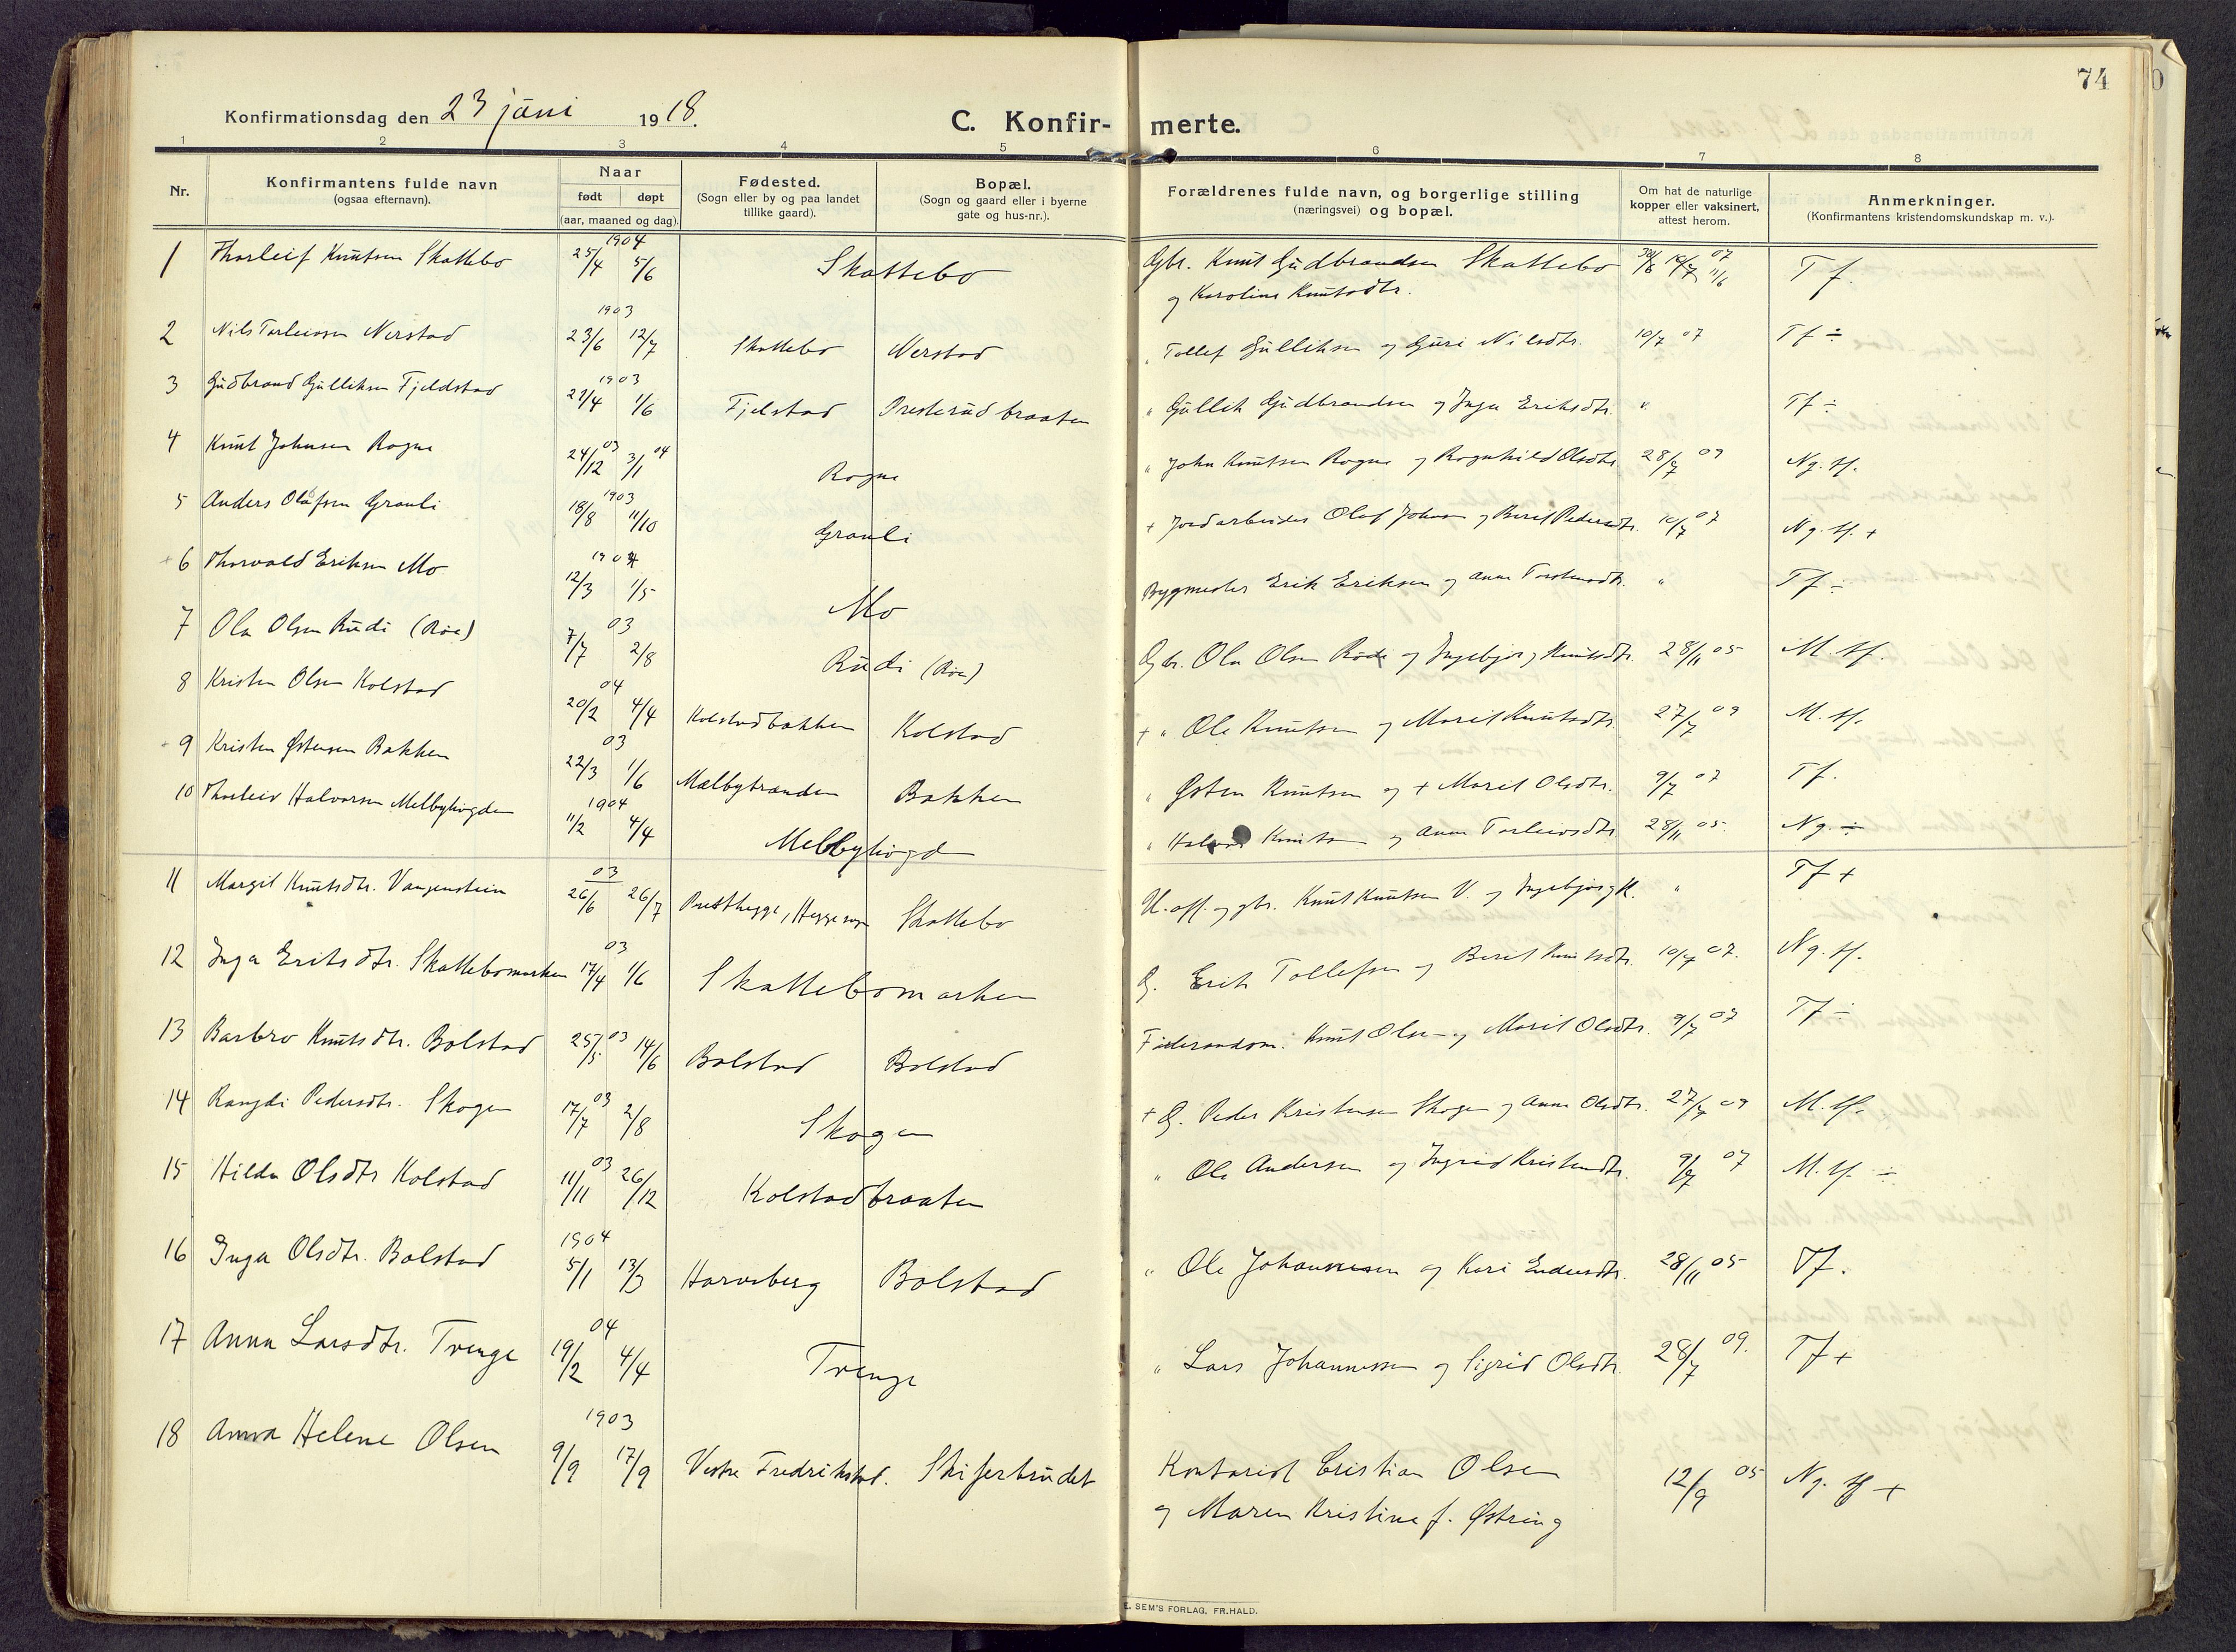 74
Konfirmationsdag den 23 juni 1918.
C. Konfir- merte.
1 2 3 4 5 6 7 8
Nr. Konfirmantens fulde navn (ogsaa efternavn). Naar født døpt (aar, maaned og dag). Fødested. (Sogn eller by og paa landet tillike gaard). Bopæl. (Sogn og gaard eller i byerne gate og hus-nr.). Forældrenes fulde navn, og borgerlige stilling (næringsvei) og bopæl. Om hat de naturlige kopper eller vaksinert, attest herom. Anmerkninger. (Konfirmantens kristendomskundskap m. v.).
1 Thorleif Knutsen Skattebo 1904 25/4 5/6 Skattebo Gbr. Knut Gudbrandsen Skattebo 07 11/6 Tf.
og Karoline Knutsdtr.
2 Nils Torleivsen Nerstad 1903 23/6 12/7 Skattebo Nerstad " Tollef Gulliksen og Guri Nilsdtr. 10/7 07 Tf ÷
3 Gudbrand Gulliksen Fjeldstad 1903 21/4 1/6 Fjelstad Presterudbraaten " Gullik Gudbrandsen og Inga Eriksdtr. " Tf ÷
4 Knut Johnsen Rogne 24/12 03 3/1 04 Rogne " John Knutsen Rogne og Ragnhild Olsdtr. 28/7 09 Ng. tf.
5 Anders Olafsen Granli 1903 18/8 11/10 Granli + Jordarbeider Olaf Johnsen og Berit Pedersdtr. 10/7 07 Ng. tf. +
6 Thorvald Eriksen Mo 1904 12/3 1/5 Mo Bygmester Erik Eriksen og Anne Torstensdtr. " Tf ÷
7 Ola Olsen Rudi (Röe) 03 7/7 2/8 Rudi (Röe) Gbr. Ola Olsen Röde og Ingebjörg Knutsdtr. 28/11 05 M. tf.
8 Kristen Olsen Kolstad 04 20/2 4/4 Kolstadbakken Kolstad + " Ole Knutsen og Marit Knutsdtr. 27/7 09 M. tf.
9 Kristen Østensen Bakken 03 22/3 1/6 Melbybraaden Bakken " Østen Knutsen og + Marit Olsdtr. 9/7 07 Tf.
10 Thorleiv Halvorsen Melbyhögden 1904 11/2 4/4 Melbyhögd " Halvor Knutsen og Anne Torleivsdtr. 28/11 05. Ng. ÷
11 Margit Knutsdtr. Vangenstein 03 26/6 26/7 Presthegge, Heggesogn Skattebo U.off. og gbr. Knut Knutsen V. og Ingebjörg K. " Tf +
12 Inga Eriksdtr. Skattebomarken 03 17/4 1/6 Skattebomarken G. Erik Tollefsen og Berit Knutsdtr. 10/7 07. Ng. tf.
13 Barbro Knutsdtr. Bolstad 25/5 03 14/6 Bolstad Bolstad Föderaadsm. Knut Olsen og Marit Olsdtr. 9/7 07 Tf ÷
14 Rangdi Pedersdtr. Skogen 17/7 03 2/8 Skogen + G. Peder Kristensen Skogen og Anne Olsdtr. 27/7 09 M. tf.
15 Hilda Olsdtr Kolstad 11/11 03 26/12 Kolstadbraaten " Ole Andersen og Ingrid Kristendtr. 9/7 07 M. tf. ÷
16 Inga Olsdtr. Bolstad 1904 5/1 13/3 Harvsberg Bolstad " Ole Johannesen og Kari Endresdtr. 28/11 05 Tf.
17 Anna Larsdtr. Trenge 04 19/2 4/4 Trenge " Lars Johannessen og Sigrid Olsdtr. 28/7 09. Tf +
18 Anna Helene Olsen 1903 9/9 17/9 Vestre Fredrikstad. Skiferbrudet Kontorist Cristian Olsen 12/9 05 Ng. tf +
og Maren Kristine f. Østring
E. SEM'S FORLAG, FR.HALD.